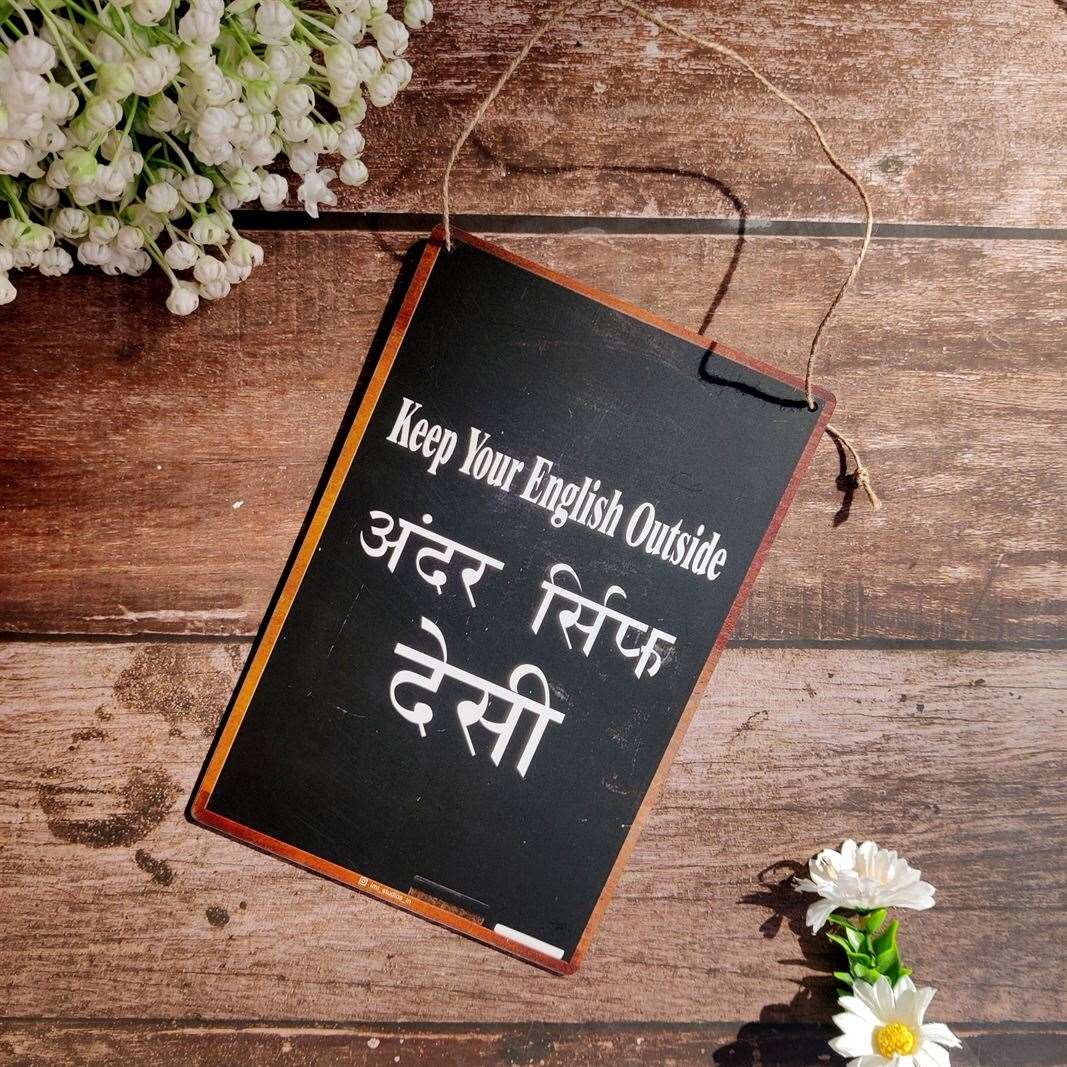 Keep Your English Outside
अंदर र्सिफ
देसी